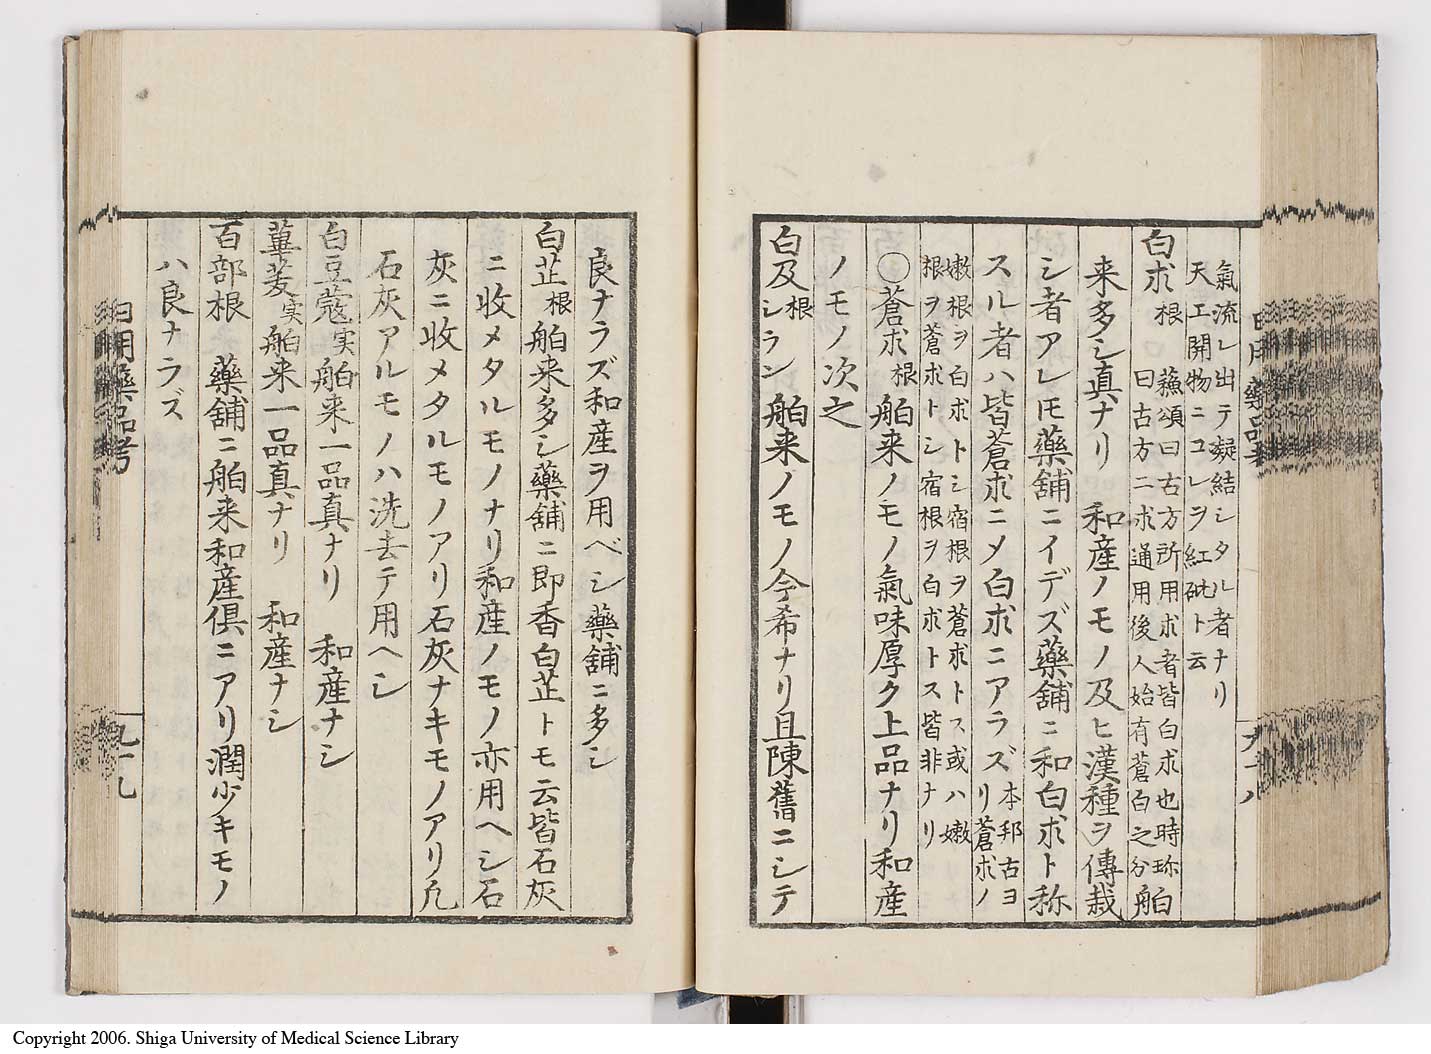 氣流レ出テ凝結シタル者ナリ
天工開物ニコレヲ紅砒ト云
白朮根 蘓頌曰古方所用朮者皆白朮也時珎
曰古方二朮通用後人始有蒼白之分 舶
来多シ真ナリ 和産ノモノ及ヒ漢種ヲ傳栽
シ者アレ𪜈藥舗ニイデズ藥舗ニ和白朮ト称
スル者ハ皆蒼朮ニメ白朮ニアラズ 本邦古ヨ
リ蒼朮ノ
嫩根ヲ白朮トシ宿根ヲ蒼朮トス或ハ嫩
根ヲ蒼朮トシ宿根ヲ白朮トス皆非ナリ
〇蒼朮根 舶来ノモノ氣味厚ク上品ナリ和産
ノモノ次之
白及根 シラン 舶来ノモノ今希ナリ且陳舊ニシテ
良ナラズ和産ヲ用ベシ藥舗ニ多シ
白芷根 舶来多シ藥舗ニ即香白芷トモ云皆石灰
ニ收メタルモノナリ和産ノモノ亦用ヘシ石
灰ニ收メタルモノアリ石灰ナキモノアリ凡
石灰アルモノハ洗去テ用ヘシ
白豆蔲実 舶来一品真ナリ 和産ナシ
蓽茇実 舶来一品真ナリ 和産ナシ
百部根 藥舗ニ舶来和産倶ニアリ潤少キモノ
ハ良ナラズ
日用藥品考
九十九
Copyright 2006. Shiga University of Medical Science Library